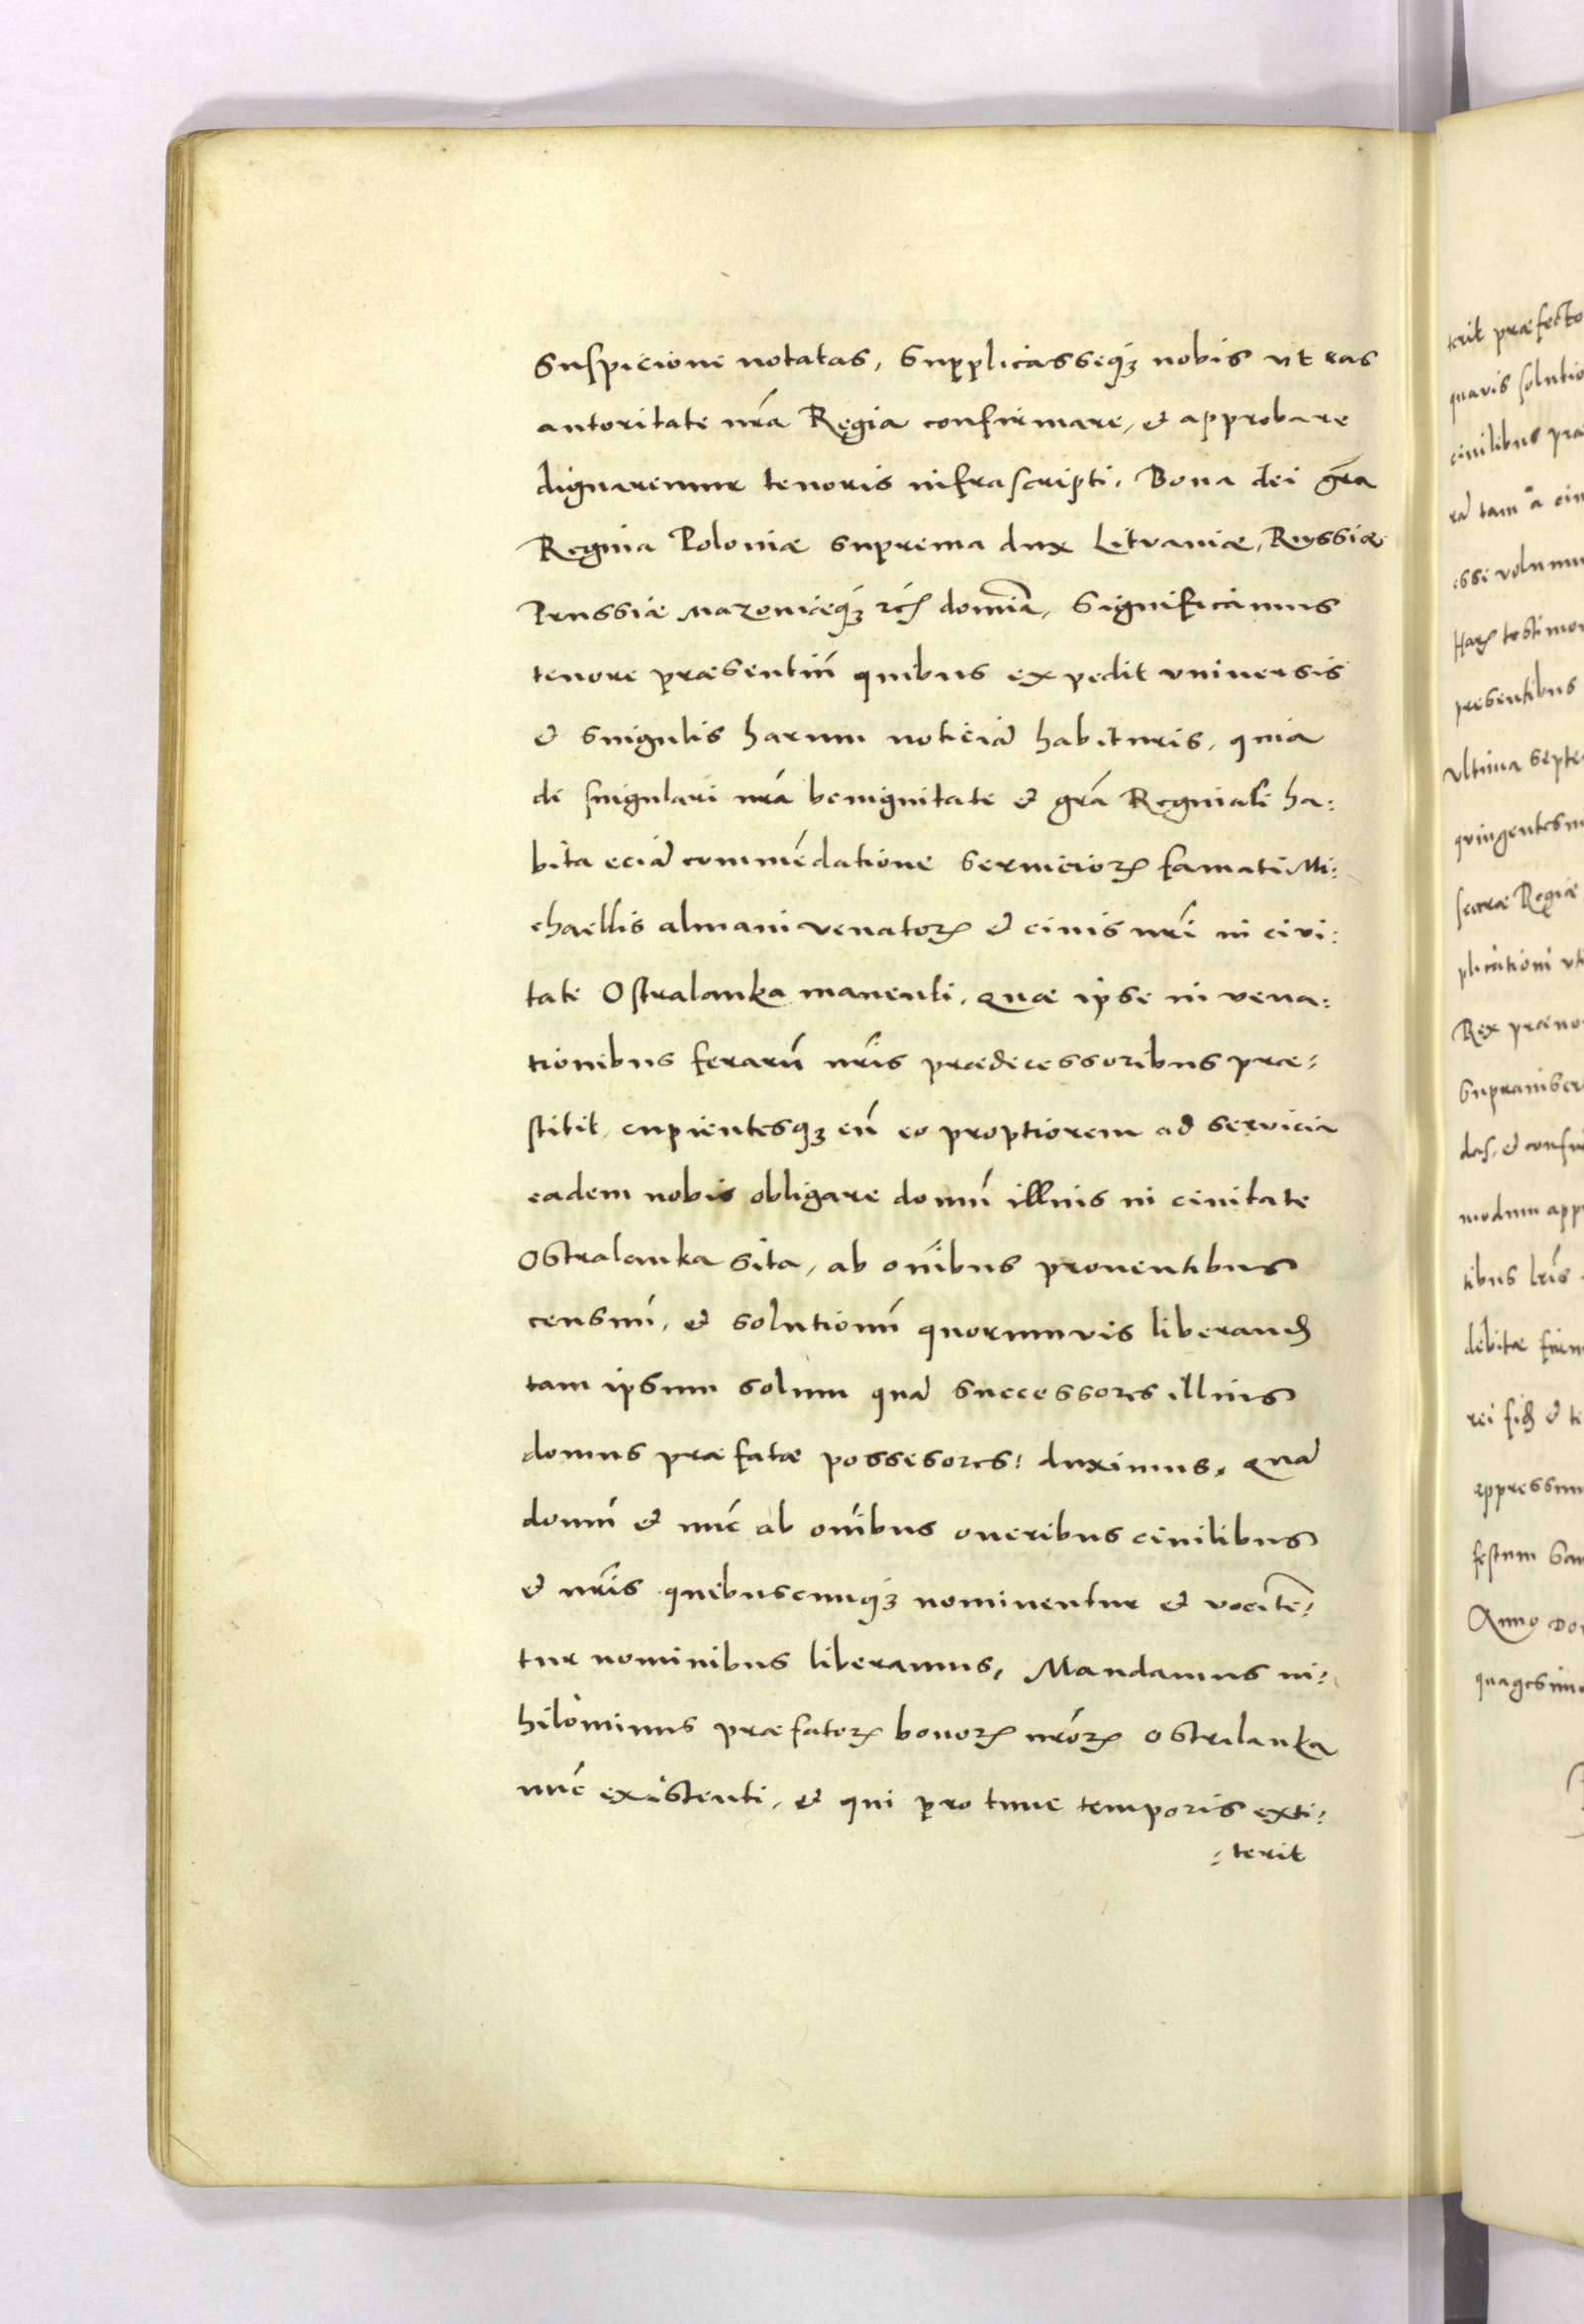 Suspicione notatas, Supplicasseqȝ nobis ut eas
autoritate nr̃a Regia confirmare, et approbare
dignaremur tenoris infrascripti. Bona dei gr̃a
Regina Poloniæ suprema dux Litvaniæ, Russiæ
Prussiæ Mazoviæqȝ etc̃ domina, Significamus
tenore præsentiũ quibus expedit universis
et singulis harum noticiã habituris, quia
de singulari nr̃a benignitate et gr̃a Reginali ha:
bita eciã commẽdatione servicioꝝ famati Mi:
chaellis almani venatoꝝ et civis nr̃i in civi:
tate Ostralanka manenti, quæ ipse in vena:
tionibus ferarũ nr̃is prædecessoribus præ:
stitit, cupientesqȝ eũ eo proptiorem ad servicia
eadem nobis obligare domũ illius in civitate
Ostralanka sita, ab oĩbus proventibus
censuũ, et solutionũ quorumvis liberand
tam ipsum solum quã successores illius
domus præfatæ possesores: duximus, quã
domũ et nũc ab oĩbus oneribus civilibus
et nr̃is quibuscumqȝ nominentur et vocitẽ:
tur nominibus liberamus, Mandamus ni:
hilominus præfatoꝝ bonoꝝ nr̃oꝝ Ostralanka
nũc existenti, et qui pro tunc temporis exti:
:terit
terit præfecto
quavis solutio
civilibus præ
rã tam a civ
essi volumu
Haꝝ testimon
presentibus
Ultima Septe
quingentesm
sacræ Regiæ
plicationi ut
Rex præno
Suprainser
das, et confir
modum app
tibus lr̃is
debitæ firm
rei fid et te
appressum
festum San
Anno Do
quagesimo